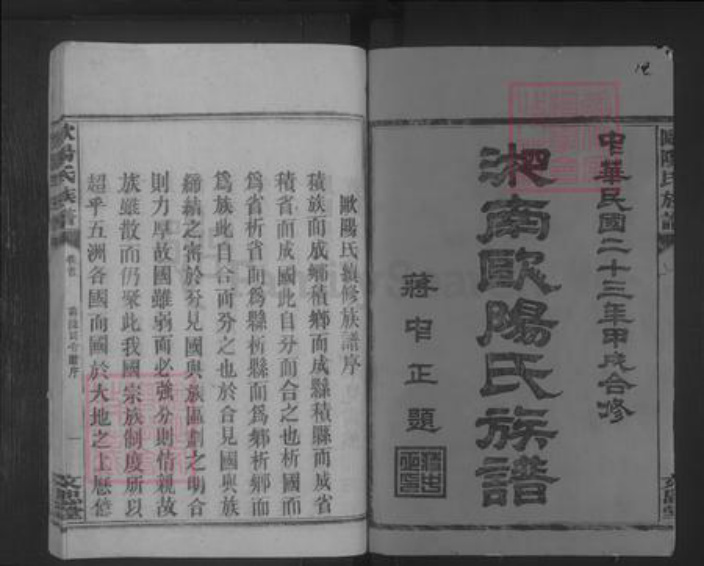 中華民國二十三年甲戌合修
湘南歐陽氏族譜
蔣中正題
歐陽氏族譜
歐陽氏續修族譜序
積族而成鄉積鄉而成縣積縣而成省
積省而成國此自分而合之也析國而
為省析省而為縣析縣而為鄉析鄉而
為族此自合而分之也於合見國與族
締結之密於分見國與族區劃之明合
則力厚故國雖弱而必強分則情親故
族雖散而仍聚此我國宗族制度所以
超乎五洲各國而國於大地之上歷億
歐陽氏族譜
卷首
一